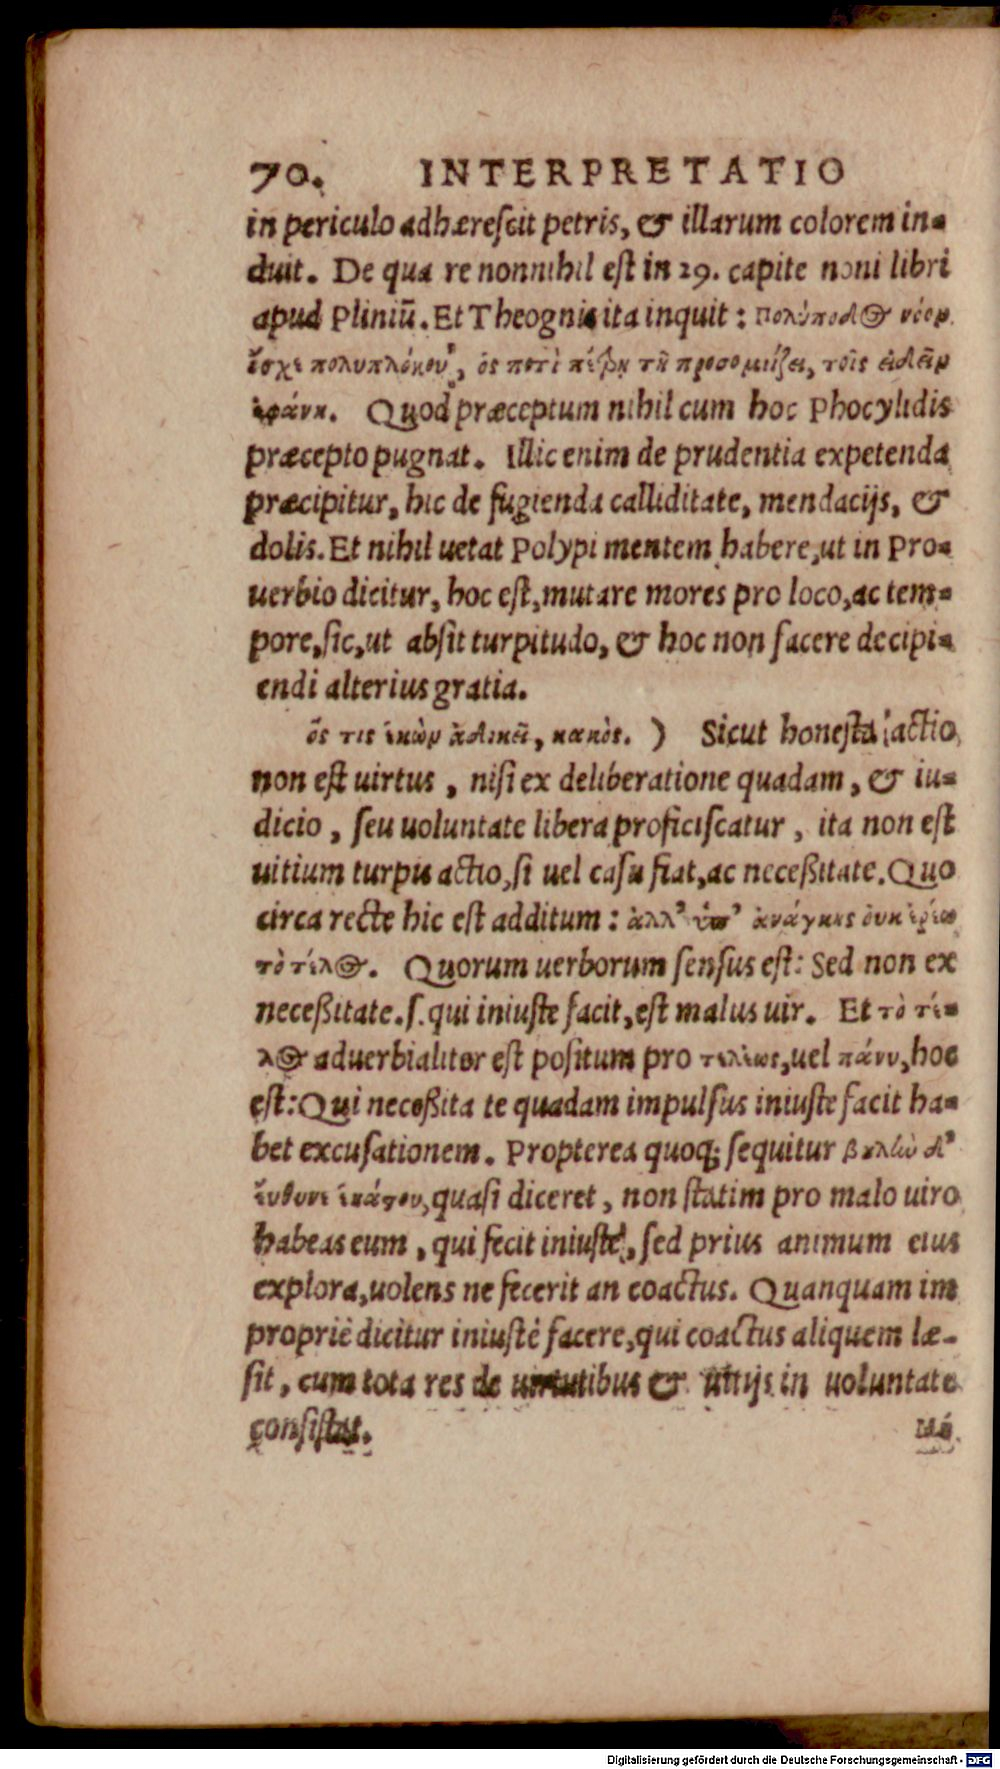 70. INTERPRETATIO
in periculo adhæreſcit petris, & illarum colorem in-
duit. De qua re nonnihil eſt in 29. capite noni libri
apud Pliniū. Et Theognis ita inquit: Πολύποδος νόον
ἴσχε πολυπλόκου, ὃς ποτὶ πέτρῃ τῇ προσομιλήσει, τοῖς ἰδεῖν
ἐφάνη. Quod præceptum nihil cum hoc Phocylidis
præcepto pugnat. Illic enim de prudentia expetenda
præcipitur, hic de fugienda calliditate, mendacijs, &
dolis. Et nihil uetat Polypi mentem habere, ut in Pro-
uerbio dicitur, hoc eſt, mutare mores pro loco, ac tem-
pore, ſic, ut abſit turpitudo, & hoc non facere decipi-
endi alterius gratia.
ὅς τις ἑκὼν ἀδικεῖ, κακὸς. ) Sicut honeſta actio
non eſt uirtus, niſi ex deliberatione quadam, & iu-
dicio, ſeu uoluntate libera proficiſcatur, ita non eſt
uitium turpis actio, ſi uel caſu fiat, ac neceßitate. Quo
circa recte hic eſt additum: ἀλλ’ ὑπ’ ἀνάγκης οὐκ ἐρέω
τὸ τέλος. Quorum uerborum ſenſus eſt: Sed non ex
neceßitate. ſ. qui iniuſte facit, eſt malus uir. Et τὸ τέ-
λος aduerbialiter eſt poſitum pro τελέως, uel πάνυ, hoc
eſt: Qui neceßita te quadam impulſus iniuſte facit ha-
bet excuſationem. Propterea quoq; ſequitur βουλὴν δ’
εὔθυνε ἑκάστου, quaſi diceret, non ſtatim pro malo uiro
habeas eum, qui fecit iniuſtè, ſed prius animum eius
explora, uolens ne fecerit an coactus. Quanquam im
propriè dicitur iniuſtè facere, qui coactus aliquem læ-
ſit, cum tota res de uirtutibus & uitijs in uoluntate
conſiſtat.
Digitalisierung gefördert durch die Deutsche Forschungsgemeinschaft - DFG